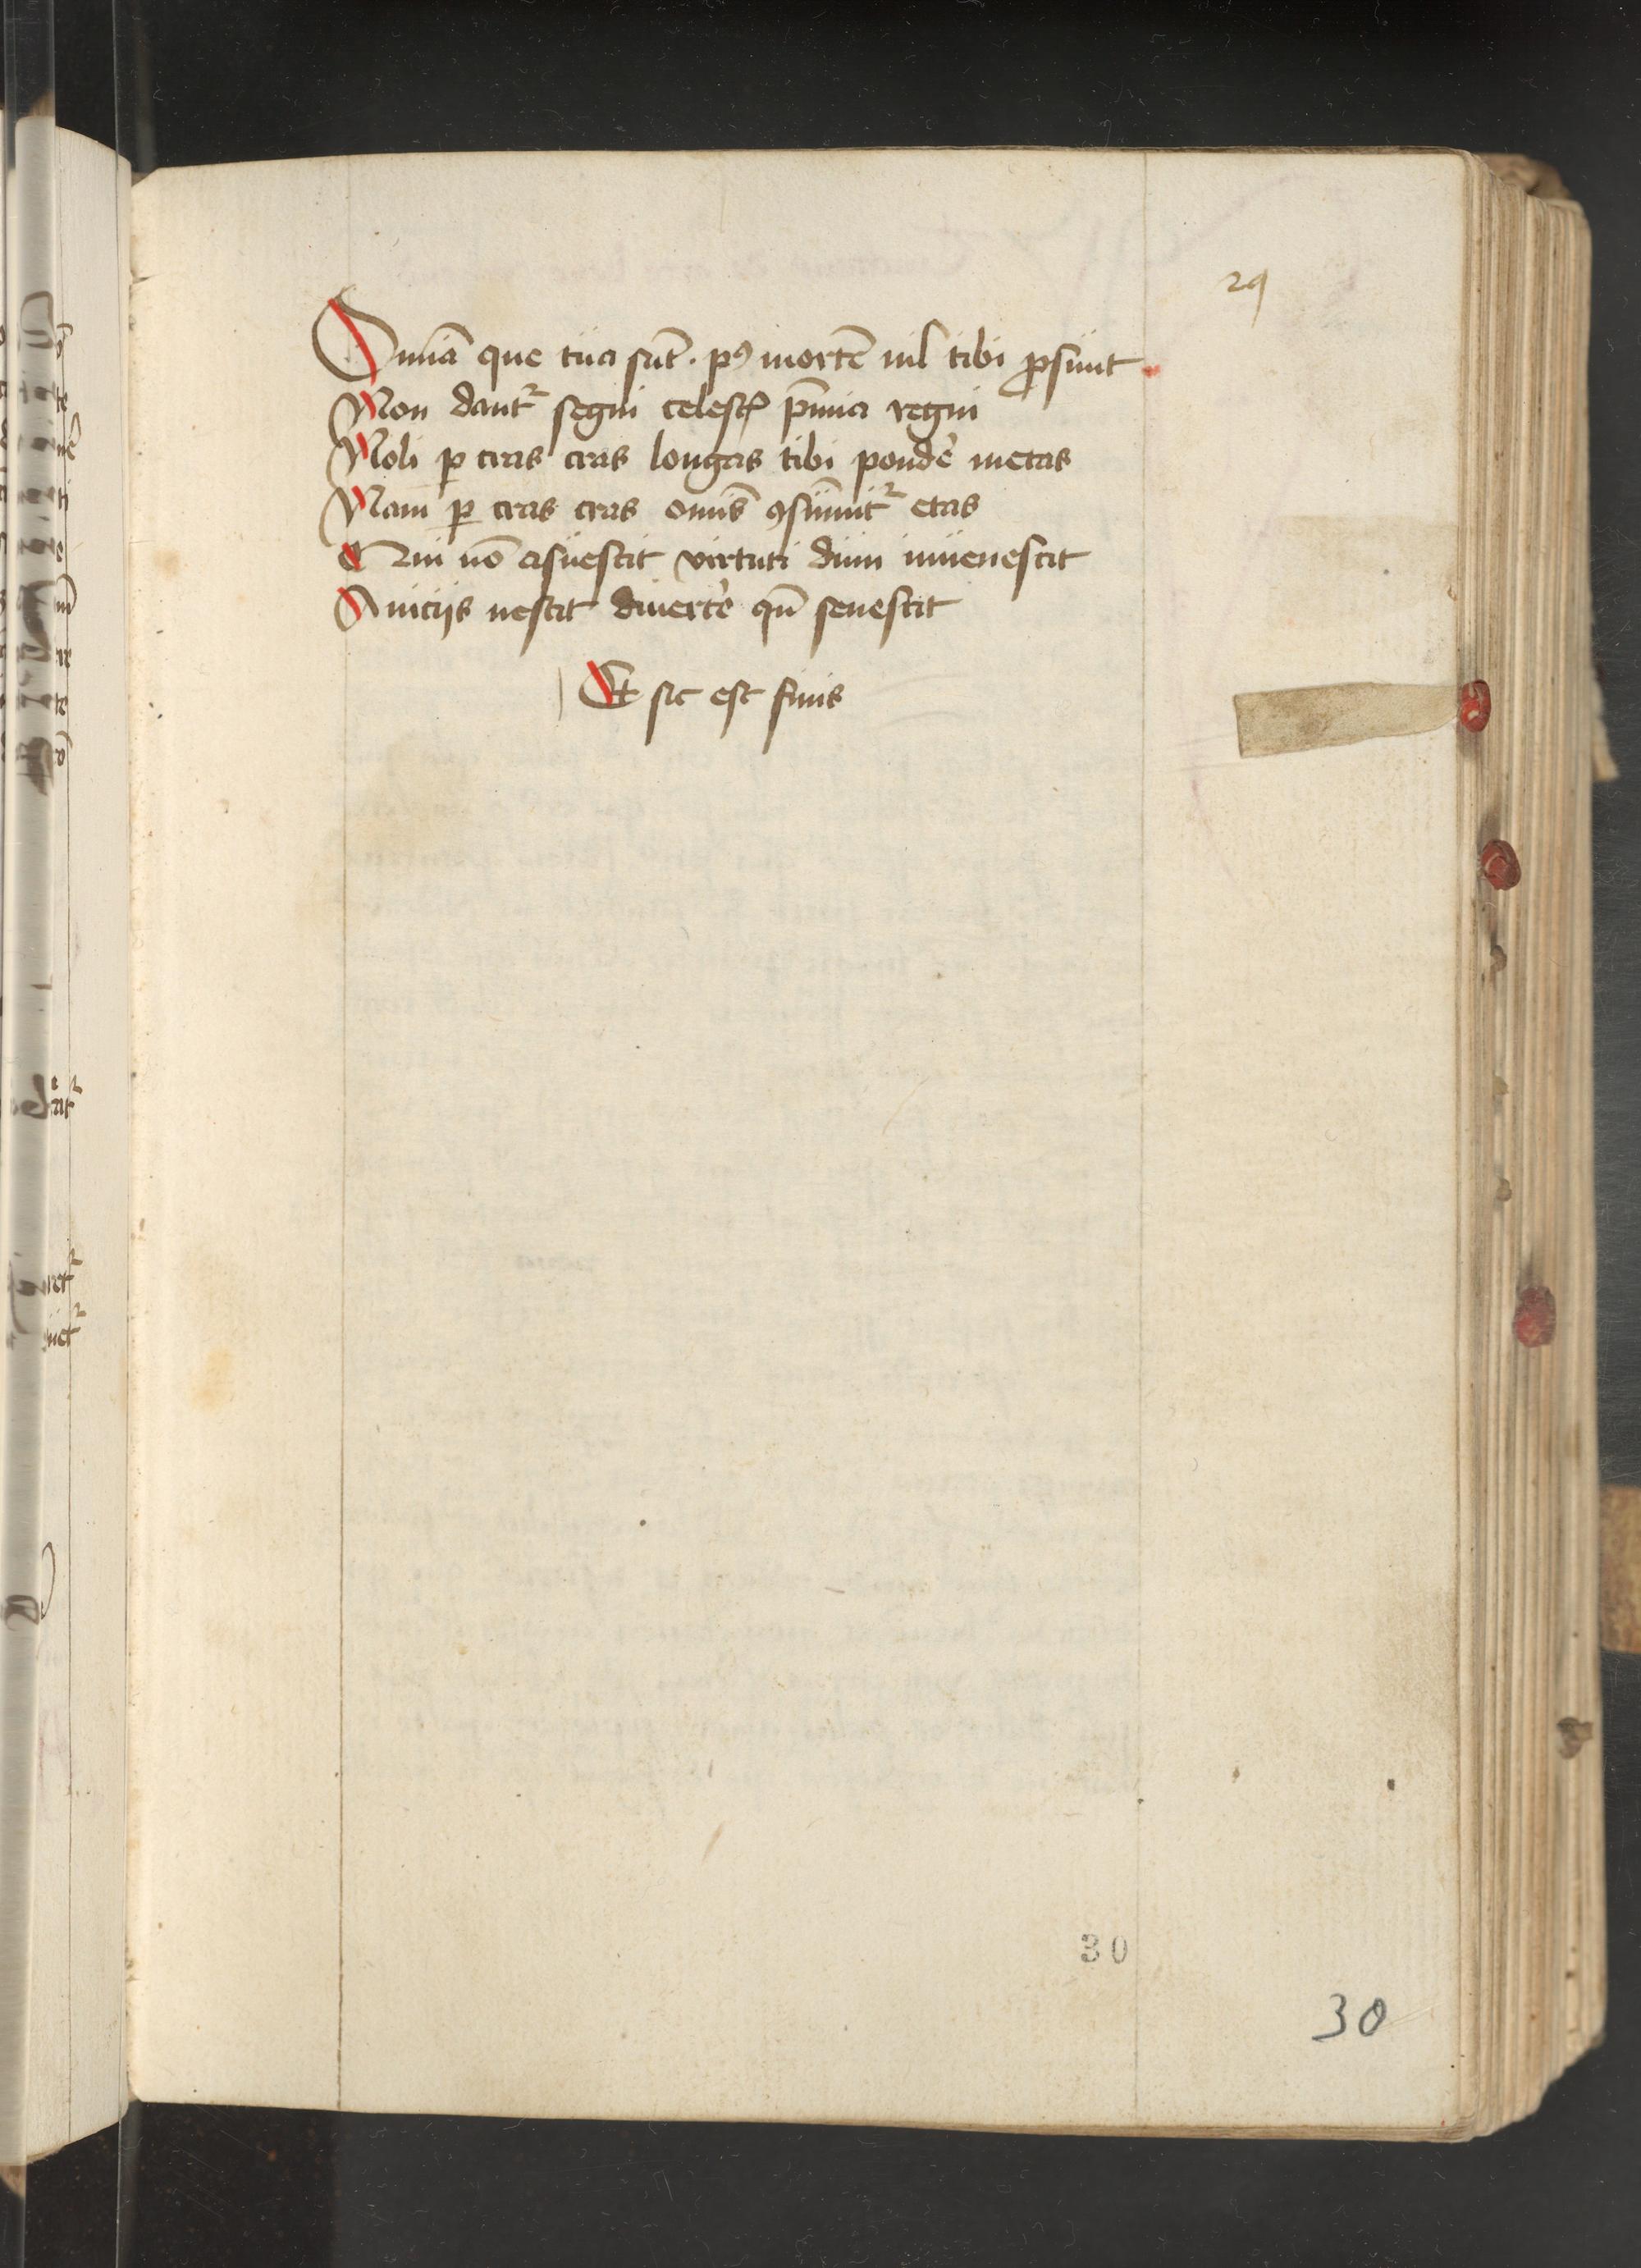 29
Om̄ia que tua sūt. pꝰ mortē nil tibi ꝓsunt
Non dantᷣ segni celestꝭ p̄mia regni
Noli ꝑ cras cras longas tibi pondẻ metas
Nam ꝑ cras cras om̄is ꝯsūmitᷣ etas
Qui nō asuescit virtuti dum iuuenescit
A vicijs nescit diuertẻ qn̄ senescit
Et sic est finis
30
30